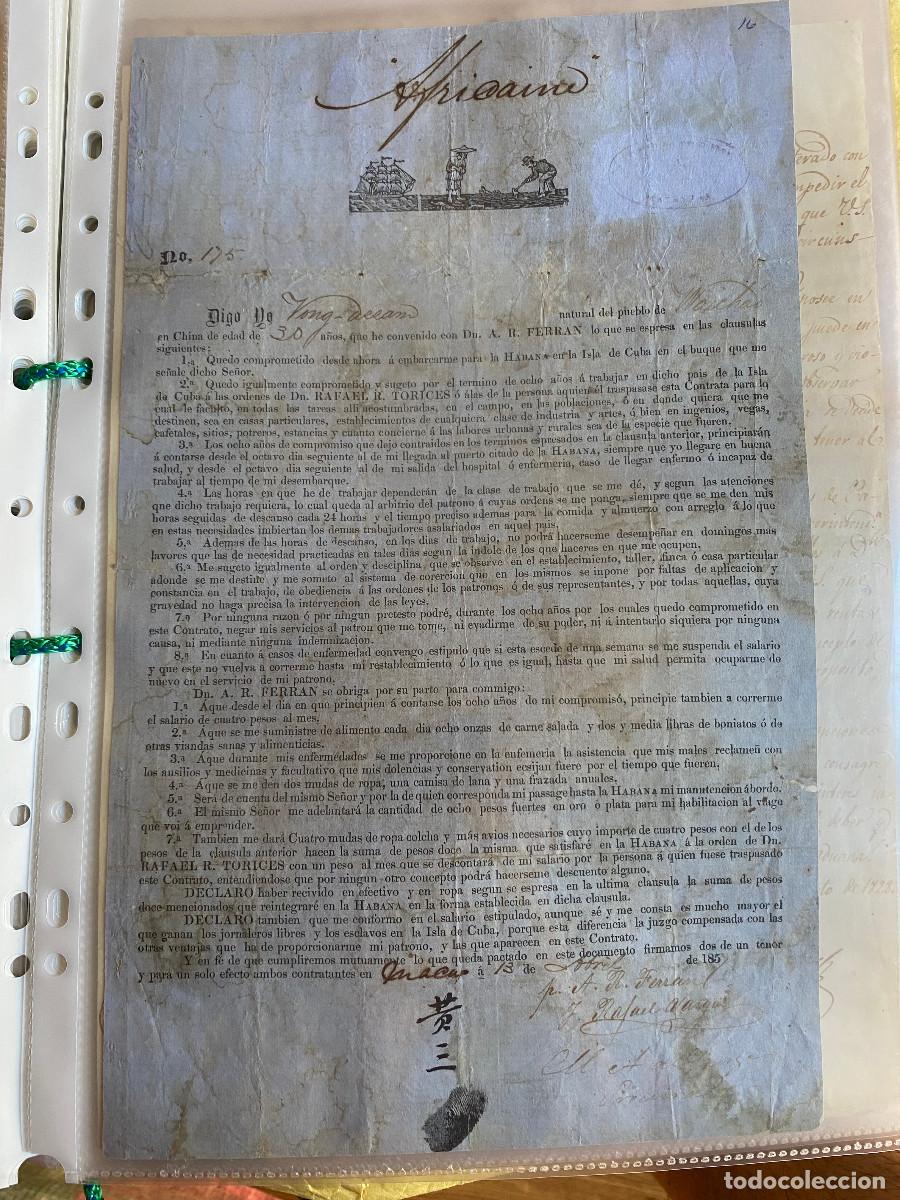 16
"Africaine"
No. 175
Digo Yo Vong-Assam natural del pueblo de
en China de edad de 30 años, que he convenido con Dn. A. R. FERRAN lo que se espresa en las clausulas
siguientes:
1.a Quedo comprometido desde ahora á embarcarme para la HABANA en la Isla de Cuba en el buque que me
señale dicho Señor.
2.a Quedo igualmente comprometido y sugeto por el termino de ocho años á trabajar en dicho pais de la Isla
de Cuba á las ordenes de Dn. RAFAEL R. TORICES ó álas de la persona aquien el traspasase esta Contrata para lo
cual le faculto, en todas las tareas alli acostumbradas, en el campo, en las poblaciones, ó en donde quiera que me
destinen, sea en casas particulares, establecimientos de cualquiera clase de industria y artes, ó bien en ingenios, vegas,
cafetales, sitios, potreros, estancias y cuanto concierne á las labores urbanas y rurales sea de la especie que fueren.
3.a Los ocho años de compromiso que dejo contraidos en los terminos espresados en la clausula anterior, principiarán
á contarse desde el octavo dia seguiente al de mi llegada al puerto citado de la HABANA, siempre que yo llegare en buena
salud, y desde el octavo dia seguiente al de mi salida del hospital ó enfermeria, caso de llegar enfermo ó incapaz de
trabajar al tiempo de mi desembarque.
4.a Las horas en que he de trabajar dependerán de la clase de trabajo que se me dé, y segun las atenciones
que dicho trabajo requiera, lo cual queda al arbitrio del patrono á cuyas ordenes se me ponga, siempre que se me den mis
horas seguidas de descanso cada 24 horas y el tiempo preciso ademas para la comida y almuerzo con arreglo á lo que
en estas necesidades imbiertan los demas trabajadores asalariados en aquel pais.
5.a Ademas de las horas de descanso, en los dias de trabajo, no podrá hacerseme desempeñar en domingos mas
lavores que las de necesidad practicadas en tales dias segun la indole de los que haceres en que me ocupen.
6.a Me sugeto igualmente al orden y desciplina, que se observe en el establecimiento, taller, finca ó casa particular
adonde se me destine y me someto al sistema de corercion que en los mismos se inpone por faltas de aplicacion y
constancia en el trabajo, de obediencia á las ordenes de los patronos ó de sus representantes, y por todas aquellas, cuya
gravedad no haga precisa la intervencion de las leyes.
7.a Por ninguna razon ó por ningun pretesto podré, durante los ocho años por los cuales quedo comprometido en
este Contrato, negar mis servicios al patron que me tome, ni evadirme de su poder, ni á intentarlo siquiera por ninguna
causa, ni mediante ninguna indemnizacion.
8.a En cuanto á casos de enfermedad convengo estipulo que si esta escede de una semana se me suspenda el salario
y que este no vuelva a correrme hasta mi restablecimiento ó lo que es igual, hasta que mi salud permita ocuparme de
nuevo en el servicio de mi patrono.
Dn. A. R. FERRAN se obriga por su parto para commigo:
1.a Aque desde el dia en que principien á contarse los ocho años de mi compromisó, principie tambien a correrme
el salario de cuatro pesos al mes.
2.a Aque se me suministre de alimento cada dia ocho onzas de carne salada y dos y media libras de boniatos ó de
otras viandas sanas y alimenticias.
3.a Aque durante mis enfermedades se me proporcione en la enfermeria la asistencia que mis males reclamen con
los ausilios y medicinas y facultativo que mis dolencias y conservation ecsijan fuere por el tiempo que fueren.
4.a Aque se me den dos mudas de ropa, una camisa de lana y una frazada anuales.
5.a Será de cuenta del mismo Señor y por la de quien corresponda mi passage hasta la HABANA mi manutencion ábordo.
6.a El mismo Señor me adelantará la cantidad de ocho pesos fuertes en oro ó plata para mi habilitacion al viago
que voi á emprender.
7.a Tambien me dará Cuatro mudas de ropa colcha y más avios necesarios cuyo importe de cuatro pesos con el de los
pesos de la clausula anterior hacen la suma de pesos doce la misma que satisfaré en la HABANA á la orden de Dn.
RAFAEL R. TORICES con un peso al mes que se descontará de mi salario por la persona á quien fuese traspasado
este Contrato, entendiendose que por ningun otro concepto podrá hacerseme descuento alguno.
DECLARO haber recivido en efectivo y en ropa segun se espresa en la ultima clausula la suma de pesos
doce mencionados que reintegraré en la HABANA en la forma establecida en dicha clausula.
DECLARO tambien que me conformo en el salario estipulado, aunque sé y me consta es mucho mayor el
que ganan los jornaleros libres y los esclavos en la Isla de Cuba, porque esta diferencia la juzgo compensada con las
otras ventajas que ha de proporcionarme mi patrono, y las que aparecen en este Contrato.
Y en fé de que cumpliremos mutuamente lo que queda pactado en este documento firmamos dos de un tenor
y para un solo efecto ambos contratantes en Macao á 13 de de 185
p. A. R. Ferran
J. Rafael
黃
三
todocoleccion